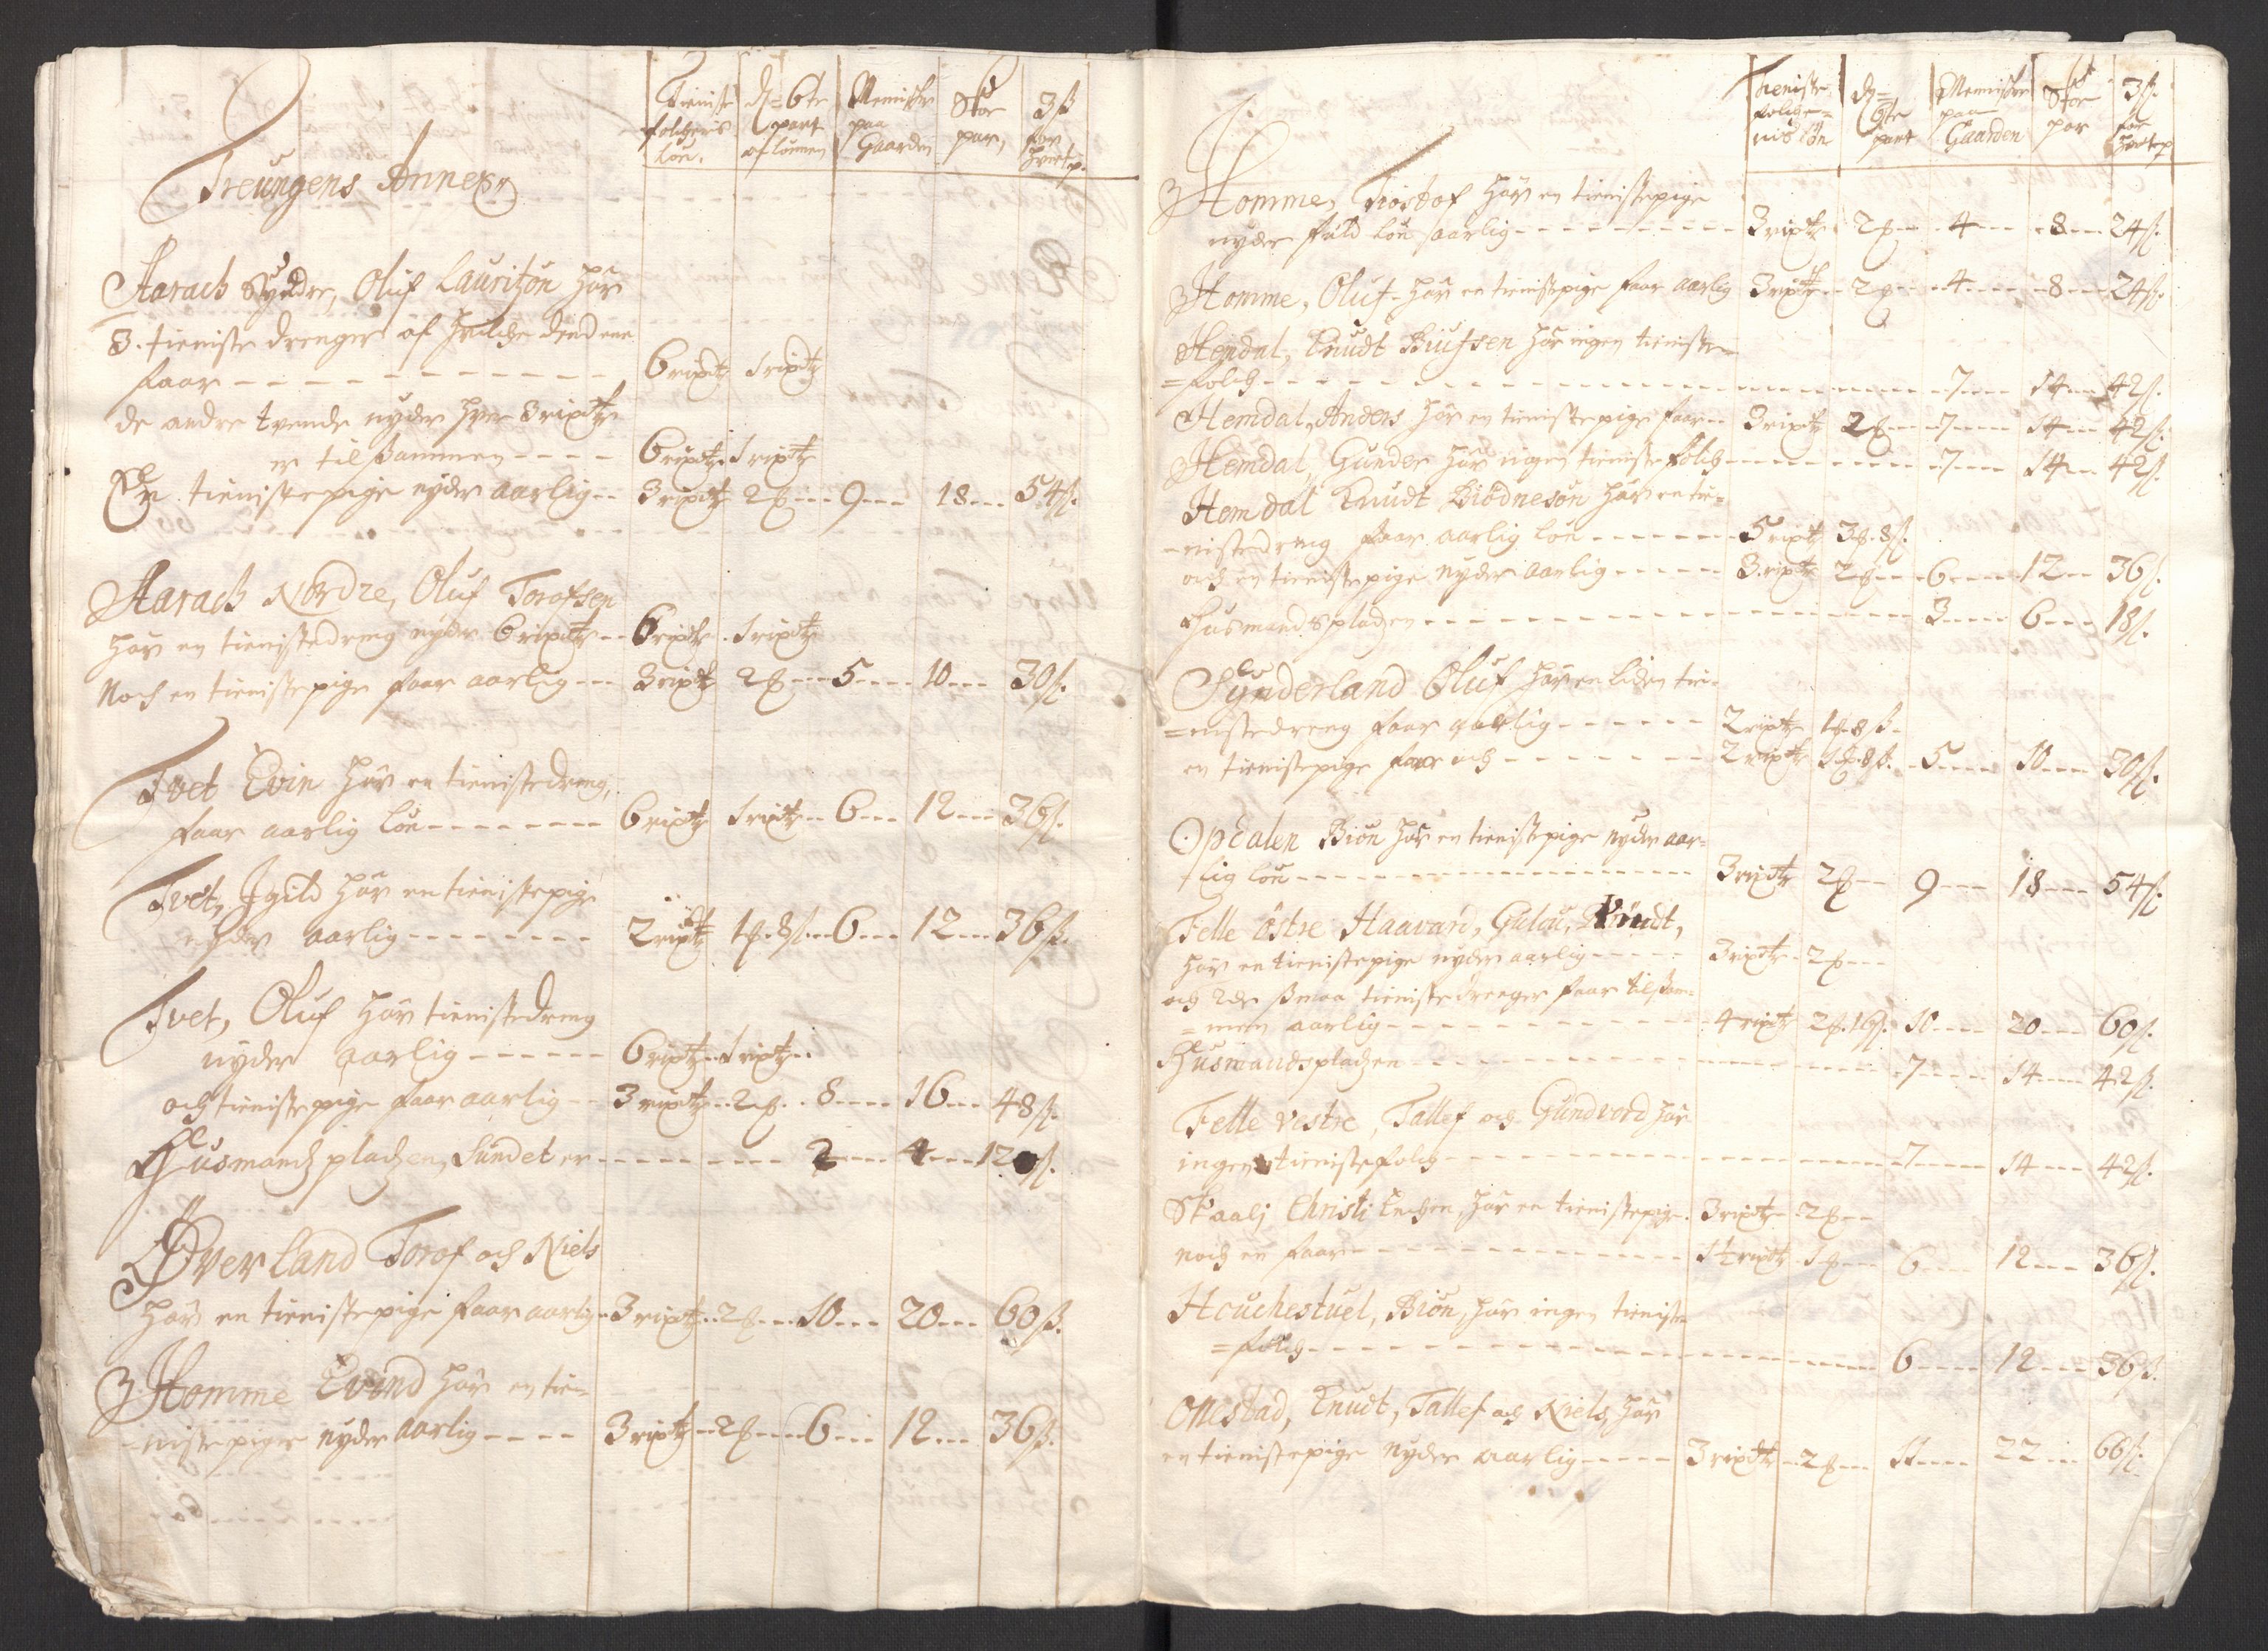 Tieniste d= 6te Mennischer Skoe 3ß
folchenis part paa par, for
Lön. af lönnen Gaarden hvert p.
Treungens Annex
Aarach Syndre, Oluf Lauritzön har
3. tieniste drenger af hvilche dend ene
faar - - - 6 rixdr 1 rixdr
de andre tvende nyder hver 3 rixdr
er tilsammen - - - 6 rixdr 1 rixdr
En tienistepige nyder aarlig - - 3 rixdr 2 - - 9 - - 18 - - 54ß.
Aarach Nordre, Oluf Torofsen
har en tienistedreng nyder 6 rixdr - - 6 rixdr 1 rixdr
Noch en tienistepige faar aarlig - - 3 rixdr 2 - - 5 - - 10 - - 30ß.
Tvet Evin har en tienistedreng,
faar aarlig lön - - - 6 rixdr 1 rixdr - - 6 - - 12 - - 36ß.
Tvet, Igild har en tienistepige
nyder aarlig - - - 2 rixdr 1 8ß - - 6 - - 12 - - 36ß.
Tvet, Oluf har tienistedreng
nyder aarlig - - - 6 rixdr - - 1 rixdr - -
och tienistepige faar aarlig - - 3 rixdr - - 2 - - 8 - - 16 - - 48ß.
Husmandz pladzen, Sundet er - - - 2 - - 4 - - 12ß.
Øverland Torof och Niels
har en tienistepige faar aarlig - 3 rixdr - - 2 - - 10 - - 20 - - 60ß.
Homme Evind har en tie=
=nistepige nyder aarlig - - - 3 rixdr - 2 - - 6 - - 12 - - 36ß.
Tieniste d= Mennischer Skoe 3ß.
folche= 6te paa par for
nis lön part Gaarden hvert p
Homme, Tiostof har en tienistepige
nyder fuld lön aarlig - - - 3 rixdr 2 - - 4 - - 8 - - 24ß.
Homme, Oluf har en tienistepige faar aarlig 3 rixdr - - 2 - - 4 - - 8 - - 24ß.
Hemdal, Knudt Biufsen har ingen tieniste=
=folch - - - 7 - - 14 - - 42ß.
Hemdal, Anders har en tienistepige faar - - 3 rixdr 2 - - 7 - - 14 - - 42ß.
Hemdal, Gunder har ingen tienistefolch - - - 7 - - 14 - - 42ß.
Hemdal Knudt Biödnesön har en tie=
=nistedreng faar aarlig lön - - - 5 rixdr 3 8ß.
och en tienistepige nyder aarlig - - - 3 rixdr 2 - - 6 - - 12 - - 36ß.
Husmandspladzen - - - 3 - - 6 - - 18ß.
Synderland Oluf har en liden tie=
=nistedreng faar aarlig - - - 2 rixdr 1 8ß
en tienistepige faar och - - - 2 rixdr 1 8ß. - 5 - - 10 - - 30ß.
Opdalen Biön har en tienistepige nyder aar=
lig lön - - - 3 rixdr 2 - - 9 - - 18 - - 54ß.
Felle östre Haavard, Knudt,
har en tienistepige nyder aarlig - - - 3 rixdr - 2 - -
och 2de smaa tienistedrenger faar tilsam=
=men aarlig - - - 4 rixdr 2 16ß. 10 - - 20 - - 60ß.
Husmandspladzen - - - 7 - - 14 - - 42ß.
Felle vestre, Tallef och Gundvord har
ingen tienistefolch - - - 7 - - 14 - - 42ß.
Skaalj Christi Enchen, har en tienistepige. 3 rixdr - 2 - -
noch en faar - - - 1½ rixdr 1 - - 6 - - 12 - - 36ß.
Houchestuel, Biön, har ingen tieniste
=folch - - - 6 - - 12 - - 36ß.
Ollestad, Knudt, Tallef och Niels, har
en tienistepige nyder aarlig - - - 3 rixdr - - 2 - - 11 - - 22 - - 66ß.